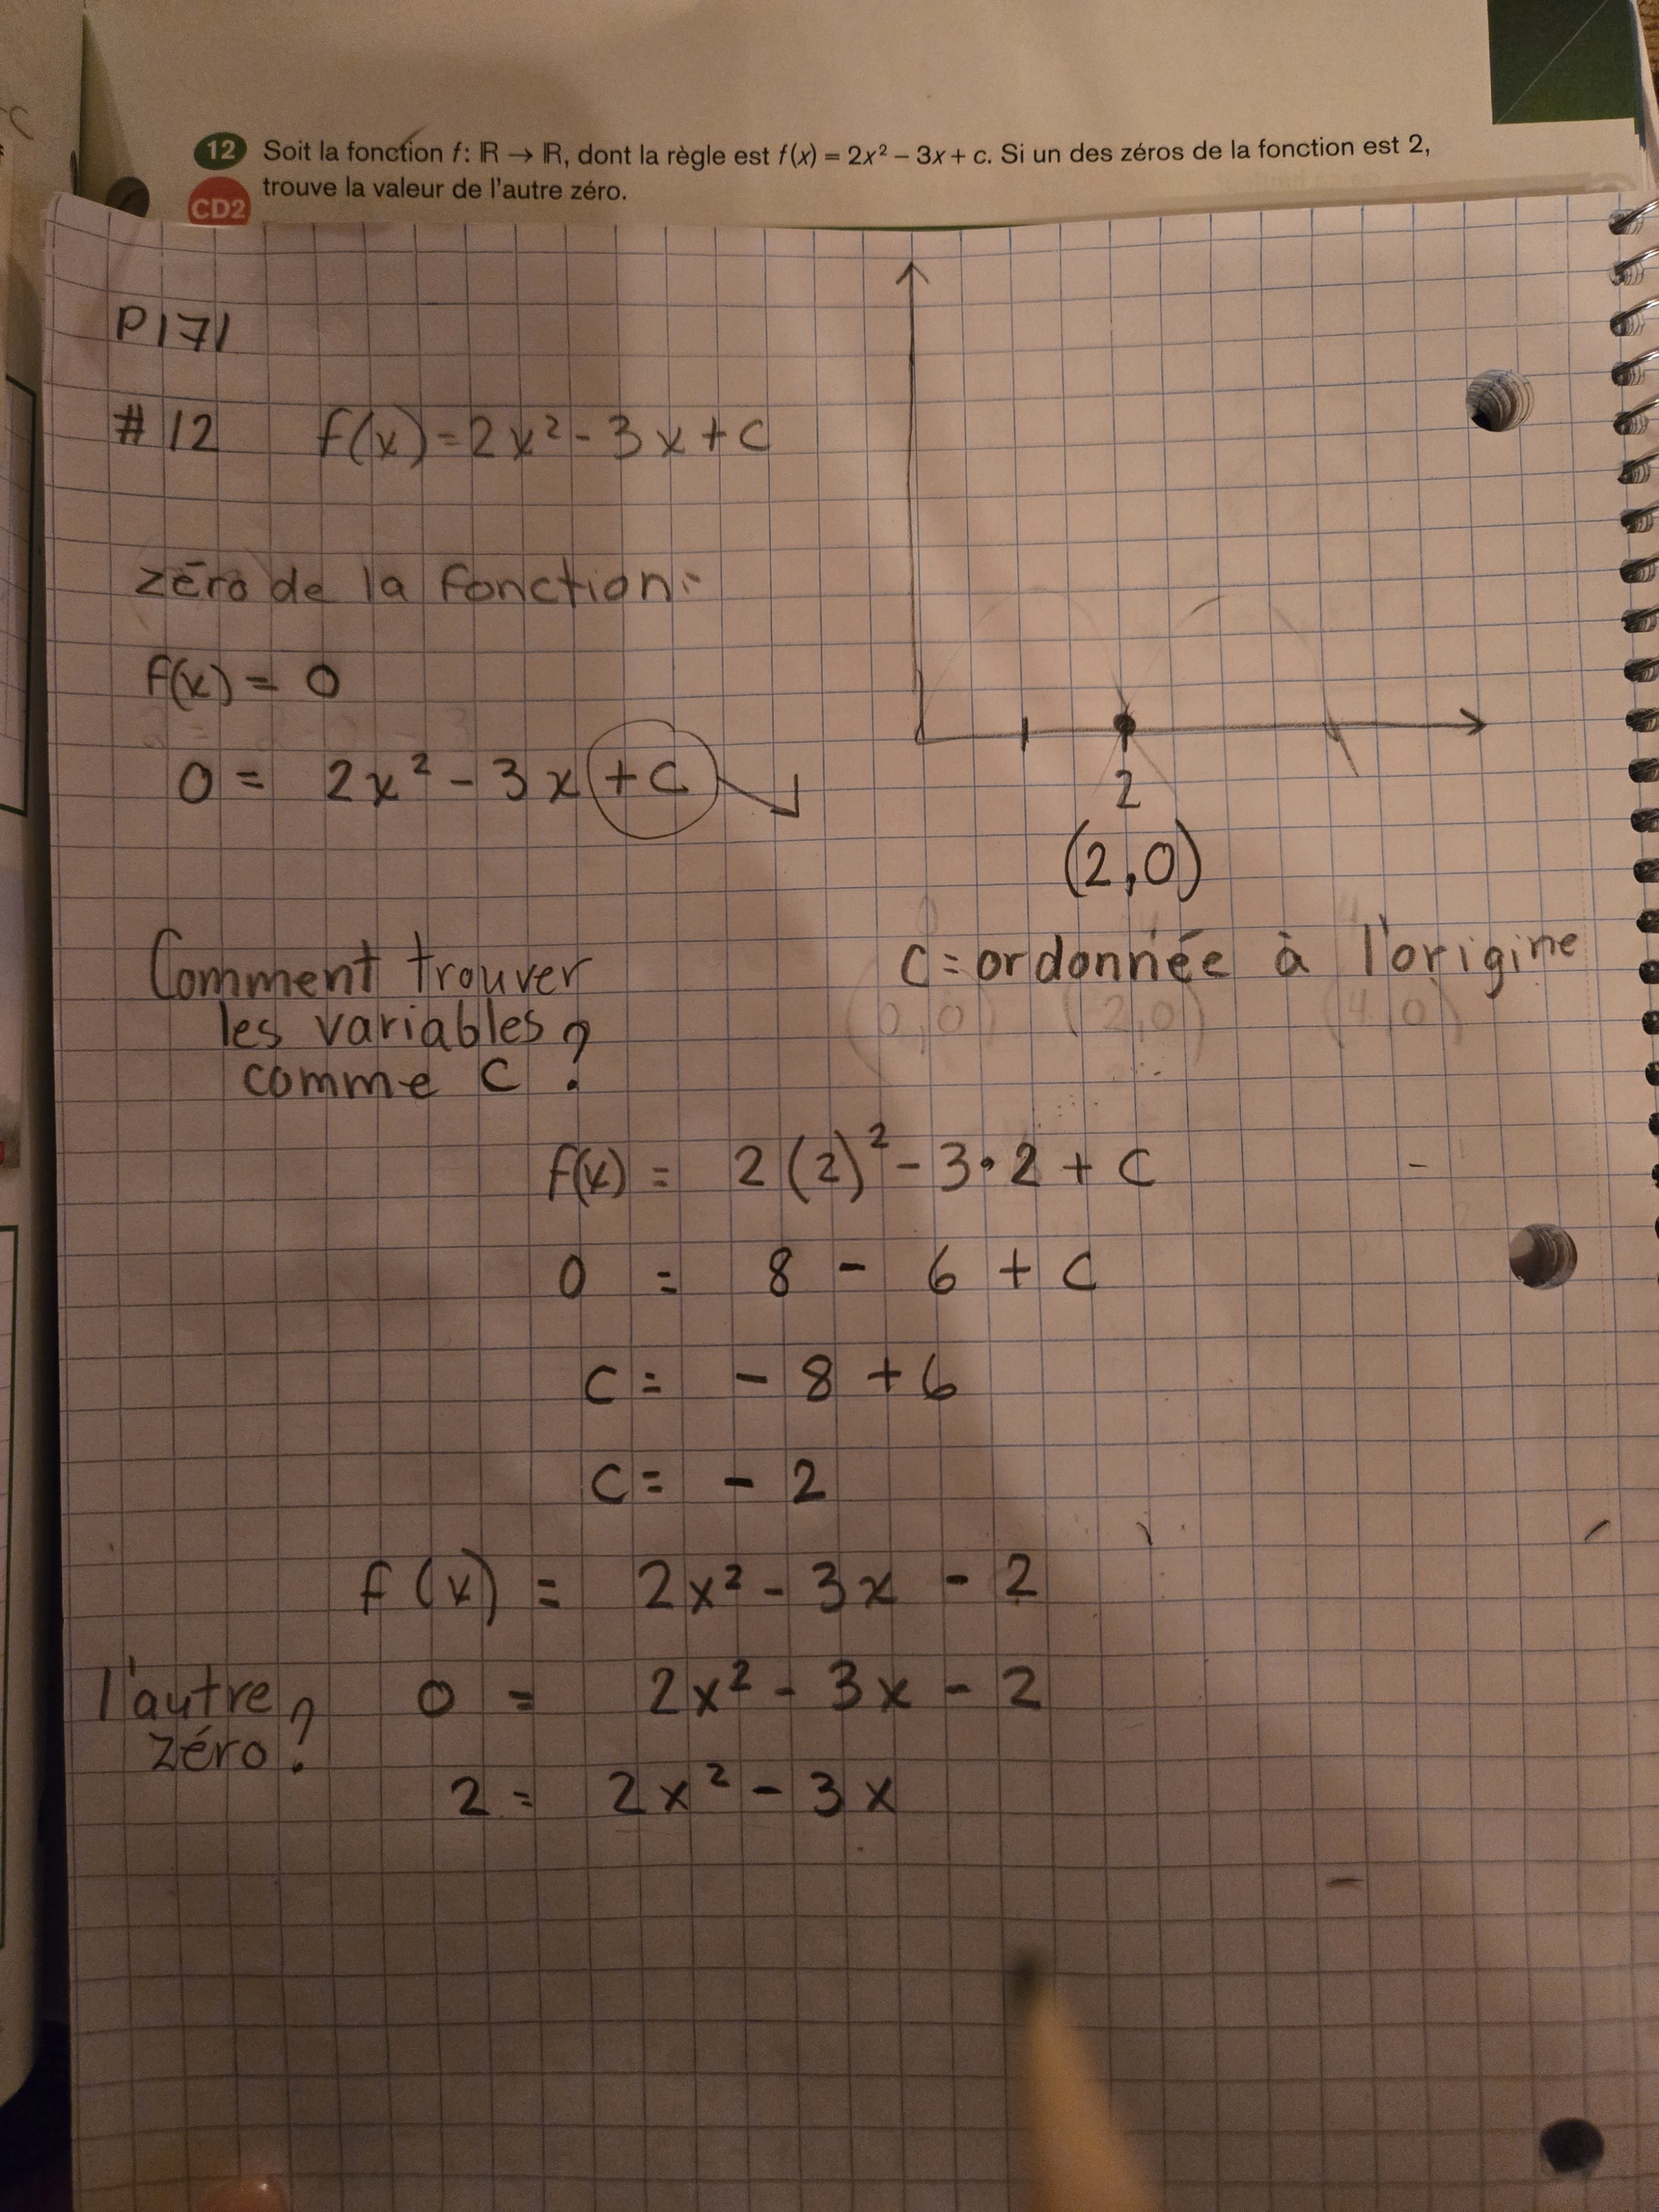 12 Soit la fonction f: ℝ → ℝ, dont la règle est f(x) = 2x² – 3x + c. Si un des zéros de la fonction est 2,
CD2 trouve la valeur de l'autre zéro.
P171
#12 f(x) = 2x² - 3x + c
zéro de la fonction:
f(x) = 0
0 = 2x² - 3x + c
2
(2,0)
Comment trouver
les variables
comme c ?
c = ordonnée à l'origine
(0,0) (2,0) (4,0)
f(x) = 2(2)² - 3•2 + c
0 = 8 - 6 + c
c = - 8 + 6
c = - 2
f(x) = 2x² - 3x - 2
l'autre
zéro?
0 = 2x² - 3x - 2
2 = 2x² - 3x